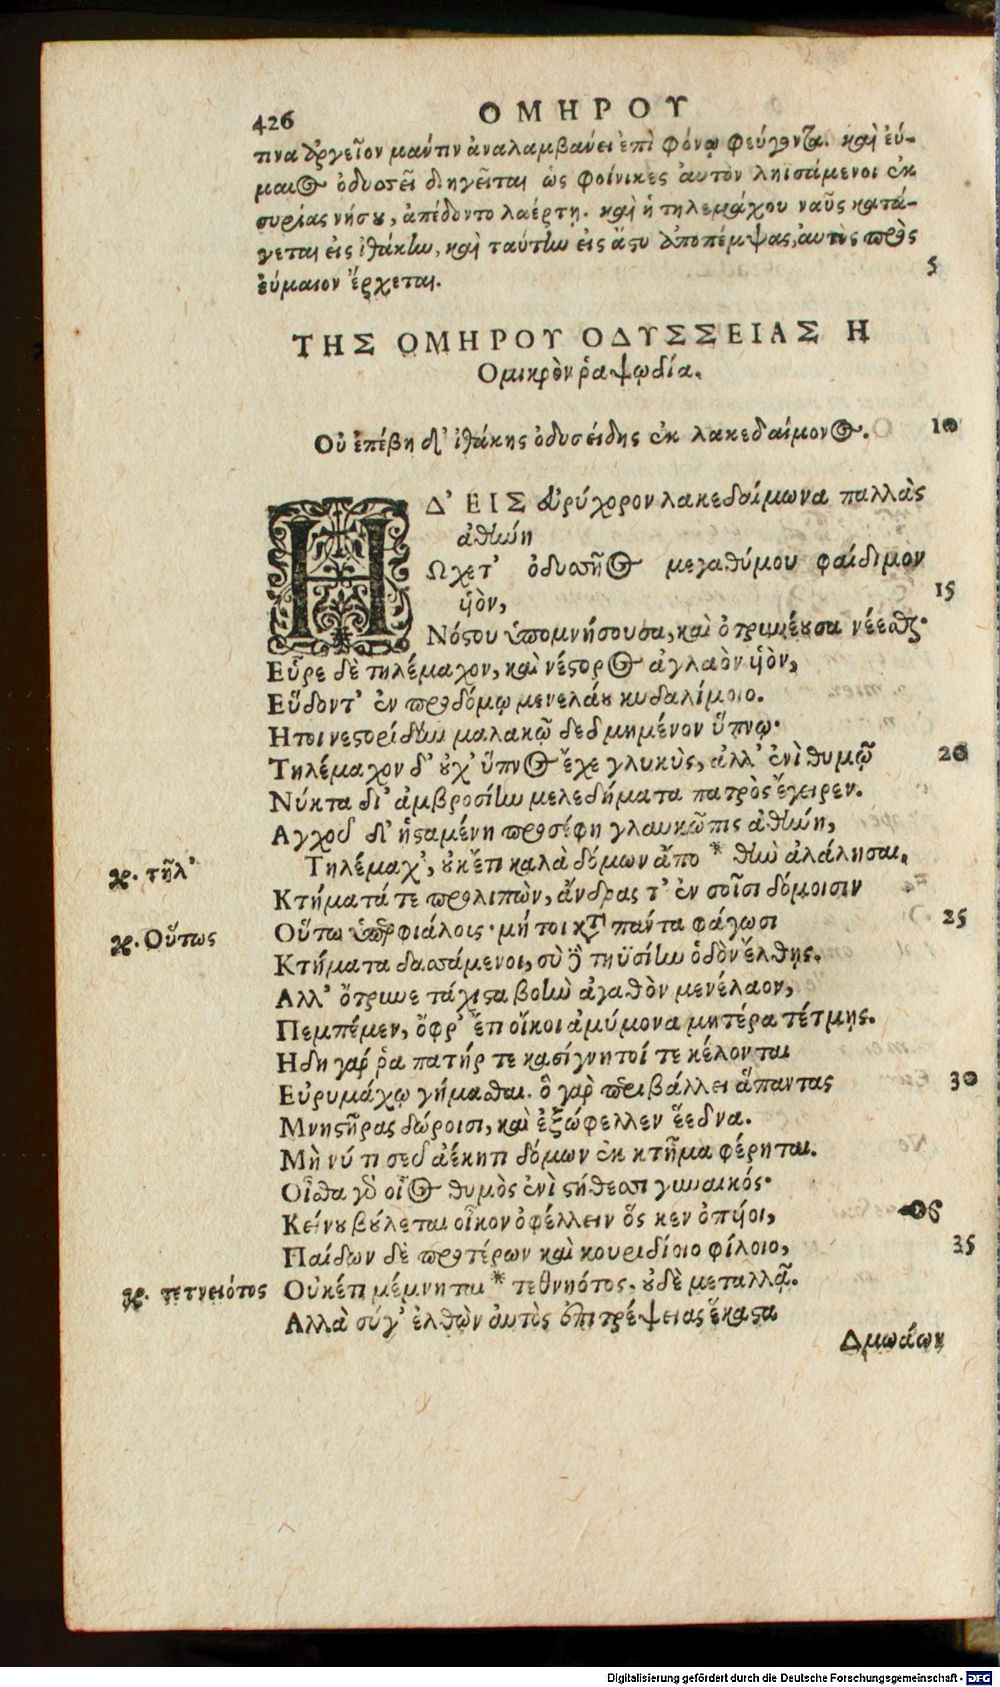 426 ΟΜΗΡΟΥ
τινα ἀργεῖον μάντιν ἀναλαμβάνει ἐπὶ φόνῳ φεύγοντα. καὶ εὔ-
μαιος ὀδυσσεῖ διηγεῖται ὡς φοίνικες αὐτὸν ληϊσάμενοι ἐκ
συρίας νήσου, ἀπέδοντο λαέρτῃ. καὶ ἡ τηλεμάχου ναῦς κατά-
γεται εἰς ἰθάκην, καὶ ταύτην εἰς ἄστυ ἀποπέμψας, αὐτὸς πρὸς 5
εὔμαιον ἔρχεται.
ΤΗΣ ΟΜΗΡΟΥ ΟΔΥΣΣΕΙΑΣ Η
Ομικρὸν ῥαψῳδία.
Οὐ ἐπέβη δ' ἰθάκης ὀδυσείδης ἐκ λακεδαίμονος. 10
Η Δ' ΕΙΣ εὐρύχορον λακεδαίμωνα παλλὰς
ἀθήνη
Ωχετ' ὀδυσσῆος μεγαθύμου φαίδιμον
ὑὸν, 15
Νόστου ὑπομνήσουσα, καὶ ὀτρυνέουσα νέεσθαι·
Εὗρε δὲ τηλέμαχον, καὶ νέστορος ἀγλαὸν ὑὸν,
Εὕδοντ' ἐν προδόμῳ μενελάου κυδαλίμοιο.
Ητοι νεστορίδην μαλακῷ δεδμημένον ὕπνῳ·
Τηλέμαχον δ' οὐχ' ὕπνος ἔχε γλυκὺς, ἀλλ' ἐνὶ θυμῷ 20
Νύκτα δι' ἀμβροσίην μελεδήματα πατρὸς ἔγειρεν.
Αγχοῦ δ' ἱσταμένη προσέφη γλαυκῶπις ἀθήνη,
γρ. τῆλ' Τηλέμαχ', οὐκ ἔτι καλὰ δόμων ἄπο * θὴν ἀλάλησαι,
Κτήματά τε προλιπὼν, ἄνδρας τ' ἐν σοῖσι δόμοισιν
γρ. Οὕτως Οὕτω ὑπερφιάλοις· μή τοι κατὰ πάντα φάγωσι 25
Κτήματα δασσάμενοι, σὺ δὲ τηϋσίην ὁδὸν ἔλθῃς.
Αλλ' ὄτρυνε τάχιστα βοὴν ἀγαθὸν μενέλαον,
Πεμπέμεν, ὄφρ' ἔτι οἴκοι ἀμύμονα μητέρα τέτμῃς.
Ηδη γάρ ῥα πατήρ τε κασίγνητοί τε κέλονται
Εὐρυμάχῳ γήμασθαι. ὃ γὰρ περιβάλλει ἅπαντας 30
Μνηστῆρας δώροισι, καὶ ἐξώφελλεν ἕεδνα.
Μὴ νύ τι σεῦ ἀέκητι δόμων ἐκ κτῆμα φέρηται.
Οἶσθα γὰρ οἷος θυμὸς ἐνὶ στήθεσσι γυναικός·
Κείνου βούλεται οἶκον ὀφέλλειν ὅς κεν ὀπύοι,
Παίδων δὲ προτέρων καὶ κουριδίοιο φίλοιο, 35
γρ. τετνειότος Οὐκέτι μέμνηται * τεθνηότος, οὐδὲ μεταλλᾷ.
Αλλὰ σύγ' ἐλθὼν αὐτὸς ἐπιτρέψειας ἕκαστα
Δμωάων
Digitalisierung gefördert durch die Deutsche Forschungsgemeinschaft - DFG